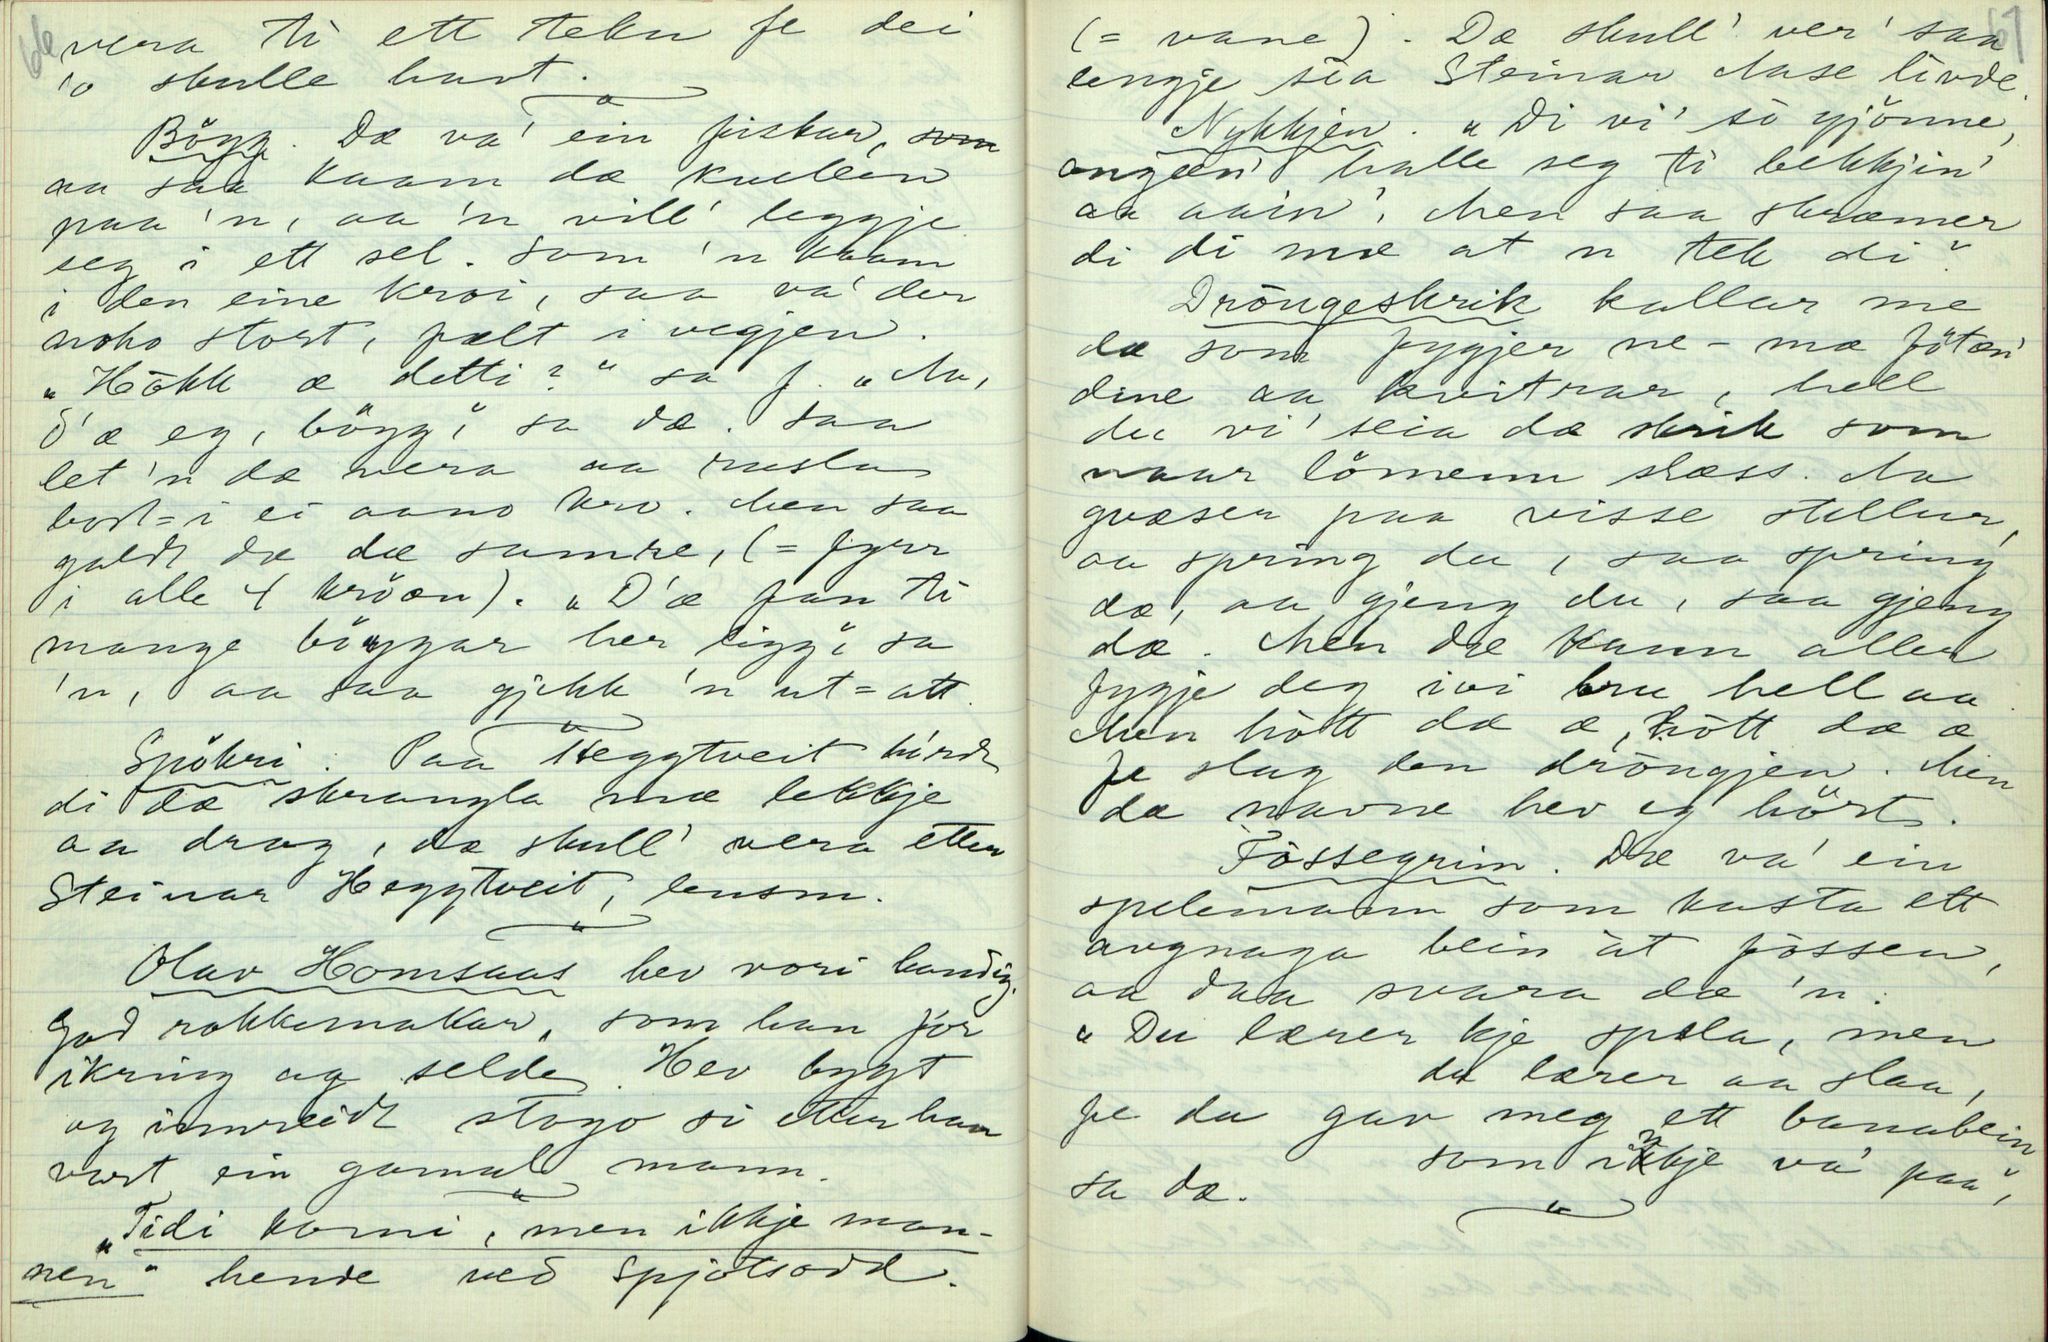 66
vera ti ett tekn fe dei
so skulle havt.
Bögg. Dæ va' ein fiskar, som
aa saa kaam dæ kvellen
paa 'n, aa 'n vill' leggje
seg i ett sel. Som 'n kaam
i den eine kroi, saa va' der
noko stort, fælt i vegjen.
"Hökk æ detti?" sa f. "Aa,
d'æ eg, bögg", sa dæ. Saa
let 'n dæ vera aa rusla
bort-i ei aano kro. Men saa
galdt dæ dæ samre, (= fyrr
i alle 4 kröæn). "D'æ fan ti
mange böggar her ligg", sa
'n, aa saa gjekk 'n ut=att.
Spökri. Paa Heggtveit hird
di dæ skrangla mæ lekkje
aa drog, dæ skull' vera etter
Steinar Heggtveit, lensm.
Olav Homsaas hev vori handig.
God rokkemakar, som han for
ikring og selde. Hev bygt
og innreidt stogo si etter han
vart ein gamal mann.
"Tidi kom i, men ikkje man-
nen" hende ved Spjotsodd.
67
(= vane). Dæ skull' ver' saa
lengje sia Steinar Aase livde.
Nykkjen. "Di vi' so gjönne,
ongæn' halle seg ti bekkjin'
aa aain', Men saa skræmer
di di mæ at n tek di".
Dröngeskrik kallar me
dæ som fygjer ne-mæ fötæn'
dine aa kvitrar, hell
du vi' seia dæ skrik som
naar lömenn slæss. Aa
gvæser paa visse stellur,
aa spring du, saa spring
dæ, aa gjeng du, saa gjeng
dæ. Men dæ kann aller
fygje deg ivi bru hell aa.
Men hött dæ æ, hött dæ æ
fe slag den dröngjen. Men
dæ navne hev eg hört.
Fössegrim. Dæ va' ein
spelemann som kasta ett
avgnaga bein åt fossen,
aa daa svara dæ 'n:
"Du lærer kje spela, men
du lærer aa slaa,
fe du gav meg ett banabein
som ikkje va' paa",
sa dæ.